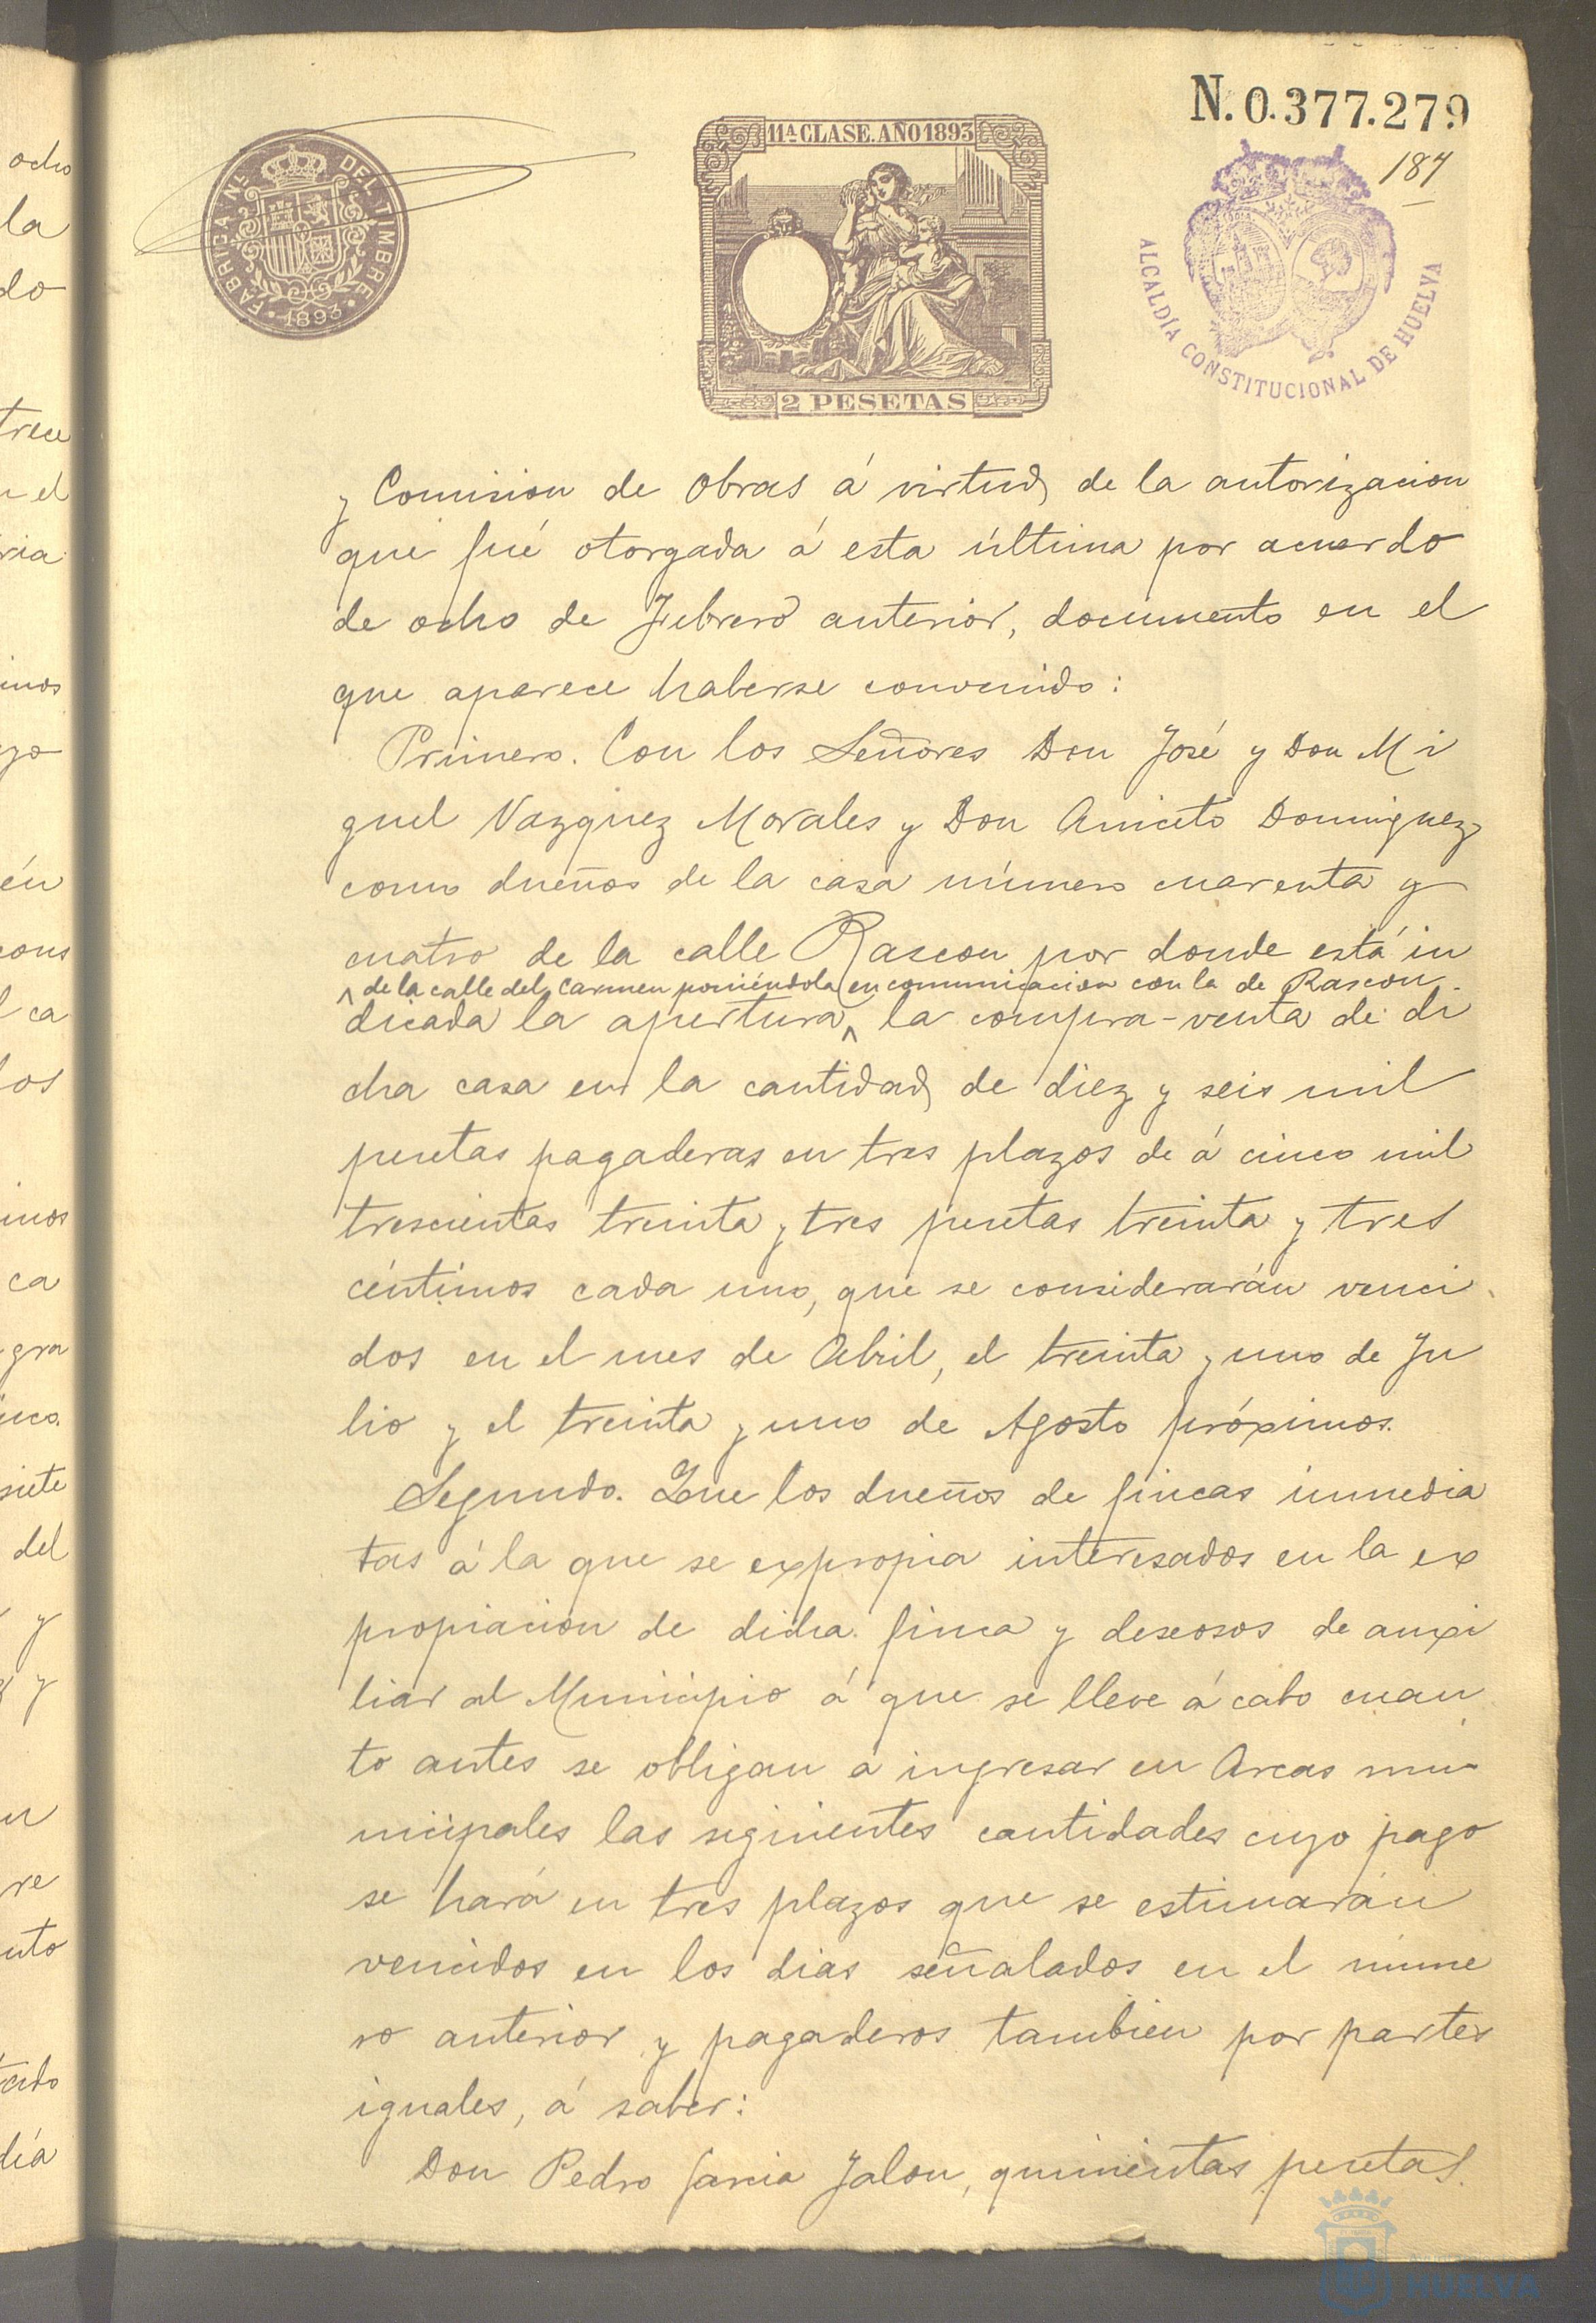 N. 0.377.279
187
11ª CLASE. AÑO 1893
2 PESETAS
FÁBRICA Nal. DEL TIMBRE
1893
ALCALDÍA CONSTITUCIONAL DE HUELVA
y Comision de Obras á virtud de la autorizacion
que fué otorgada á esta última por acuerdo
de ocho de Febrero anterior, documento en el
que aparece haberse convenido:
Primero. Con los Señores Don José y Don Mi
guel Vazquez Morales y Don Aniceto Dominguez
como dueños de la casa número cuarenta y
cuatro de la calle Rascon por donde está in
de la calle del Carmen poniéndola en comunicacion con la de Rascon.
dicada la apertura la compra-venta de di
cha casa en la cantidad de diez y seis mil
pesetas pagaderas en tres plazos de á cinco mil
trescientas treinta y tres pesetas treinta y tres
céntimos cada uno, que se considerarán venci
dos en el mes de Abril, el treinta y uno de Ju
lio y el treinta y uno de Agosto próximos.
Segundo. Que los dueños de fincas inmedia
tas á la que se expropia interesados en la ex
propiacion de dicha finca y deseosos de auxi
liar al Municipio á que se lleve á cabo cuan
to antes se obligan á ingresar en Arcas mu-
nicipales las siguientes cantidades cuyo pago
se hará en tres plazos que se estimarán
vencidos en los dias señalados en el núme
ro anterior y pagaderos tambien por partes
iguales, á saber:
Don Pedro Garcia Jalon, quinientas pesetas.
HUELVA